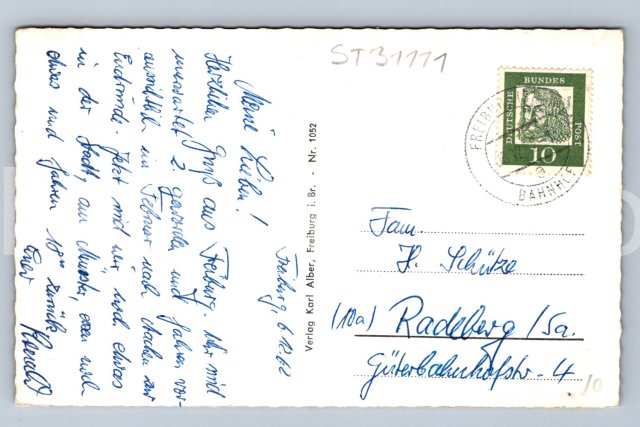 ST31111
Freiburg, 6.12.62
Meine Lieben!
Herzlichen Gruß aus Freiburg. Wir sind
2. geworden und fahren vor-
im Februar nach Aachen zur
Endrunde. Jetzt sind wir noch etwas
in der Stadt, am Münster, essen noch
etwas und fahren 18°° zurück
Euer
Verlag Karl Alber, Freiburg i. Br. - Nr. 1052
DEUTSCHE BUNDES POST
10
FREIBU
BAHNHOF
Fam.
H. Schütze
(10a) Radeberg/Sa.
Güterbahnhofstr. 4
10